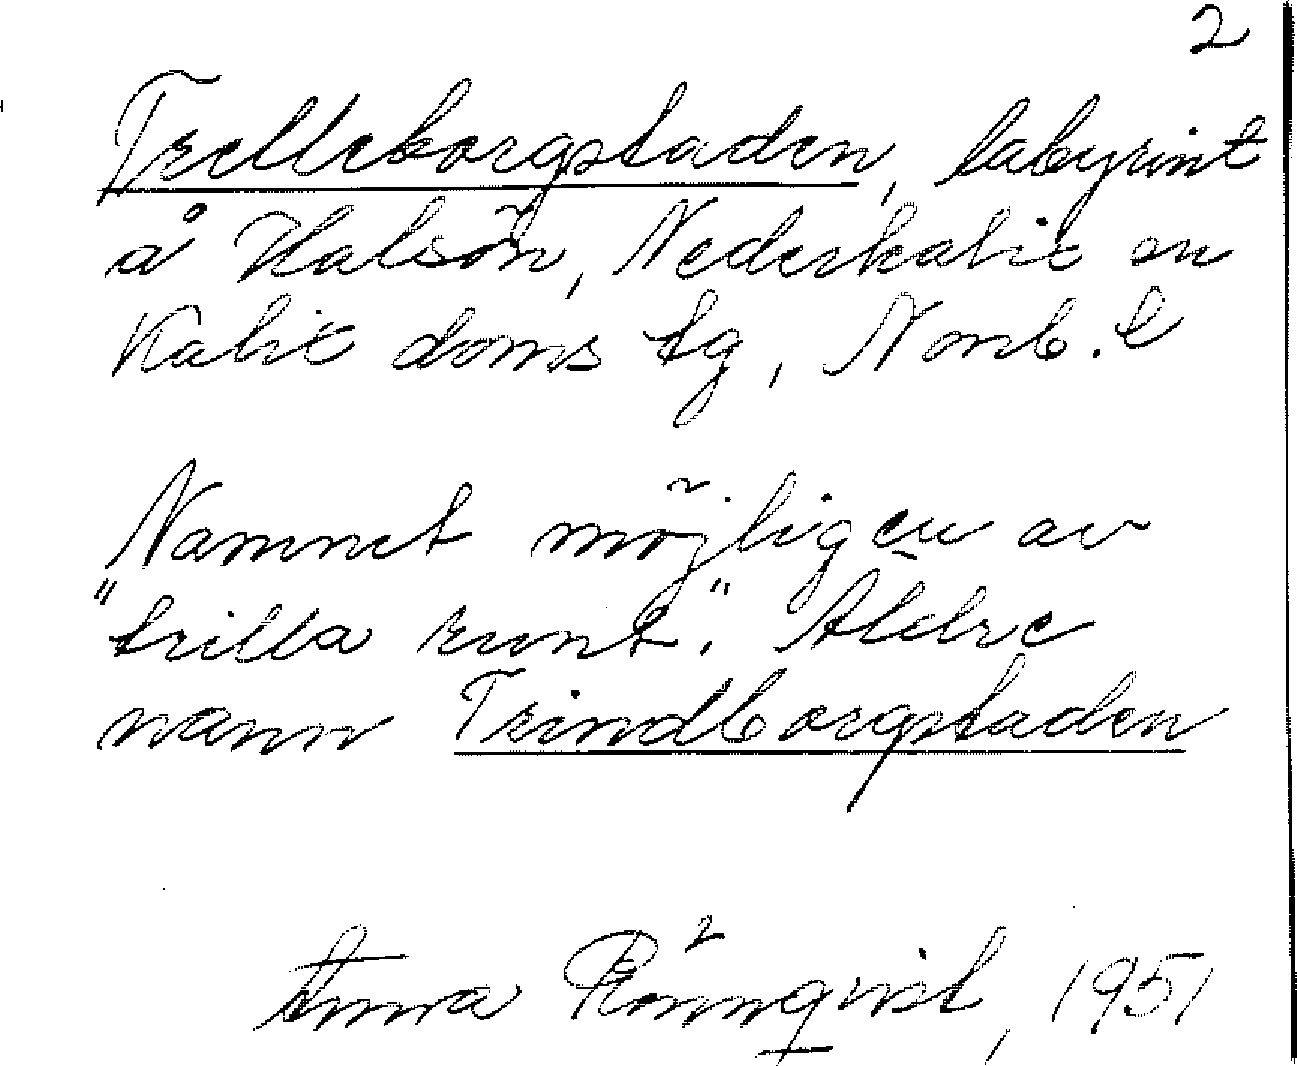 2
Trelleborgstaden, labyrint
å Halsön, Nederkalix sn
Kalix doms tg, Norrb. l
Namnet möjligen av
"trilla runt." Äldre
namn Trindborgstaden
Anna Rönnqvist, 1951